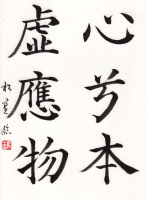 心兮本
虛應物